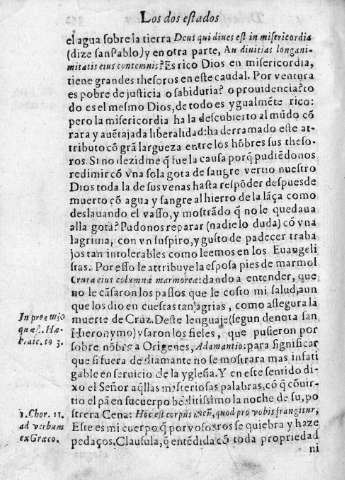 Los dos estados
el agua sobre la tierra Deus qui diues est in misericordia
(dize san Pablo) y en otra parte, An diuitias longani-
mitatis eius contemnis? Es rico Dios en misericordia,
tiene grandes thesoros en este caudal. Por ventura
es pobre de justicia o sabiduria? o prouidencia? to
do es el mesmo Dios, de todos es ygualmẽte rico:
pero la misericordia ha la descubierto al mũdo cõ
rara y auẽtajada liberalidad: ha derramado este at-
tributo cõ grã largueza entre los hõbres sus theso-
ros. Si no dezidme q̃ fue la causa porq̃ pudiẽdonos
redimir cõ vna sola gota de sangre vertio nuestro
Dios toda la de sus venas hasta respõder despues de
muerto cõ agua y sangre al hierro de la lãça como
deslauando el vasso, y mostrãdo q̃ no le quedaua
alla gota? Pudo nos reparar (nadie lo duda) cõ vna
lagrima, con vn suspiro, y gusto de padecer traba
jos tan intolerables como leemos en los Euangelis-
tas. Por esso le attribuye la esposa pies de marmol
Crura eius columnæ marmoreæ: dando a entender, que
no le cãsaron los passos que le costo mi salud, aun
que los dio en cuestas tan agrias, como assegura la
muerte de Cruz. Deste lenguaje (segun denota san
Hieronymo) vsaron los fieles, que pusieron por
sobre nõbre a Origenes, Adamantio: para significar
que si fuera de diamante no se mostrara mas infati
gable en seruicio de la Yglesia. Y en este sentido di-
xo el Señor aq̃llas misteriosas palabras, cõ q̃ cõuir-
tio el pã en su cuerpo bẽditissimo la noche de su, po
strera Cena: Hoc est corpus meũ, quod pro vobis frangitur,
Este es mi cuerpo q̃ por vosotros se quiebra y haze
pedaços. Clausula, q̃ entẽdida cõ toda propriedad
ni
In proemijo
quæs. Hæ-
braic. to 3.
1. Chor. 11.
ad verbum
ex Græco.